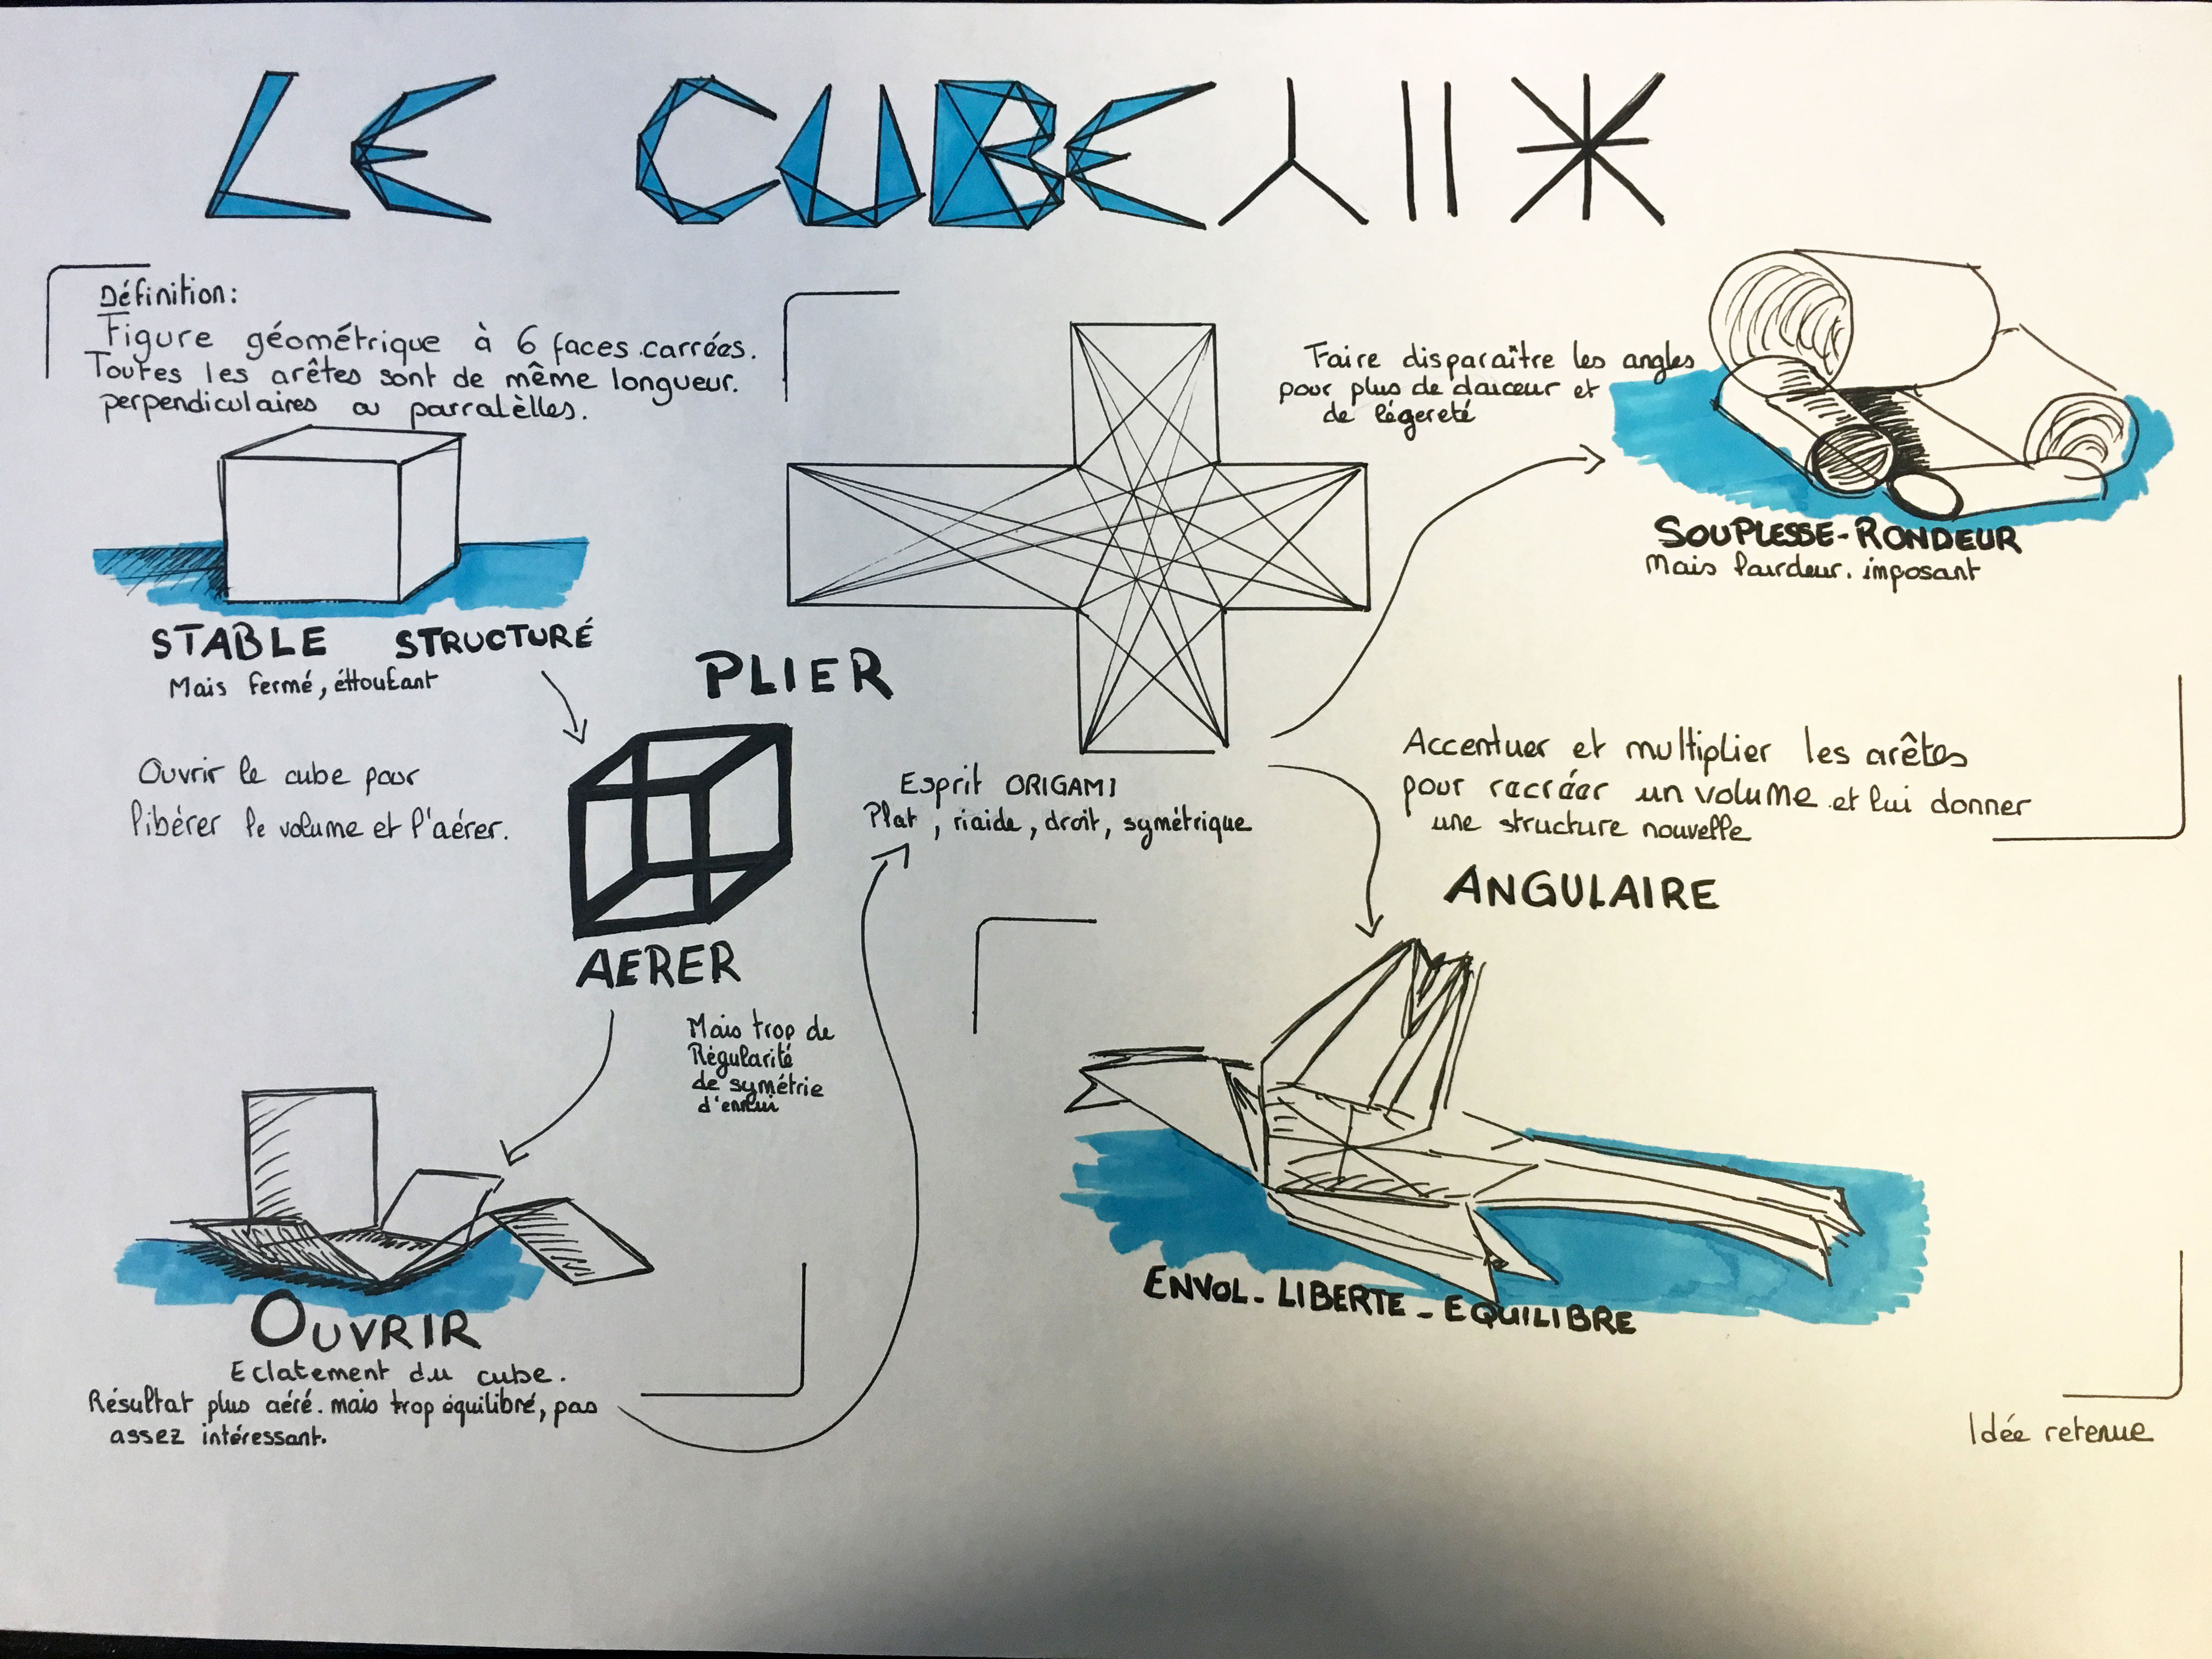 LE CUBE
Définition:
Figure géométrique à 6 faces carrées.
Toutes les arêtes sont de même longueur.
perpendiculaires ou parralèlles.
STABLE STRUCTURÉ
Mais fermé, éttoufant
Ouvrir le cube pour
libérer le volume et l'aérer.
AERER
Mais trop de
Régularité
de symétrie
d'ennui
OUVRIR
Eclatement du cube.
Résultat plus aéré. mais trop équilibré, pas
assez intéressant.
PLIER
Esprit ORIGAMI
Plat, riaide, droit, symétrique
Faire disparaître les angles
pour plus de douceur et
de légereté
SOUPLESSE-RONDEUR
Mais lourdeur. imposant
Accentuer et multiplier les arêtes
pour recréer un volume et lui donner
une structure nouvelle
ANGULAIRE
ENVOL - LIBERTE - EQUILIBRE
Idée retenue